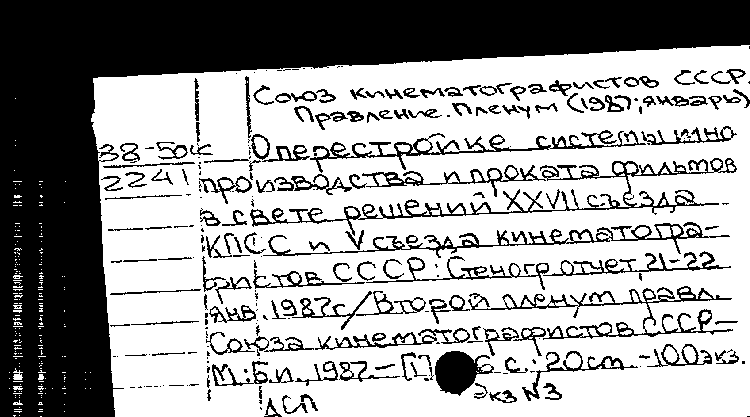 Союз кинематографистов СССР.
Правление. Пленум (1987; январь)
38-50к О перестройке системы кино
2241 производства и проката фильмов
в свете решений XXVII съезда
КПСС и V съезда кинематогра-
фистов СССР: Стеногр отчет, 21-22
янв. 1987г/Второй пленум правл.
Союза кинематографистов СССР.-
М.: Б.и., 1987.- [1] 6 с.; 20см. -100экз.
Экз N3
ДСП